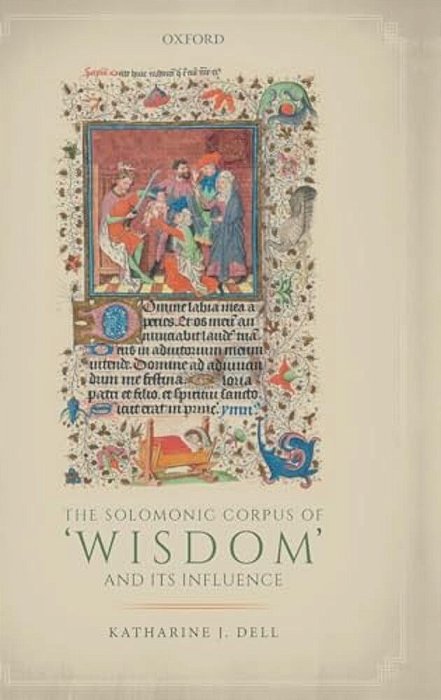 OXFORD
Domine labia mea a
peries. Et os meū an
nunciabit laudē tuā.
Deus in adiutorium meum
intende. Domine ad adiuuan
dum me festina. Gloria
patri et filio, et spiritui sancto
sicut erat in princ. ymn.
THE SOLOMONIC CORPUS OF
‘WISDOM’
AND ITS INFLUENCE
KATHARINE J. DELL